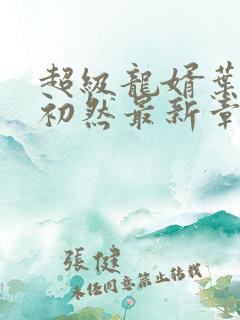 超級龍婿葉
初然最新章
張健
未經同意禁止轉載